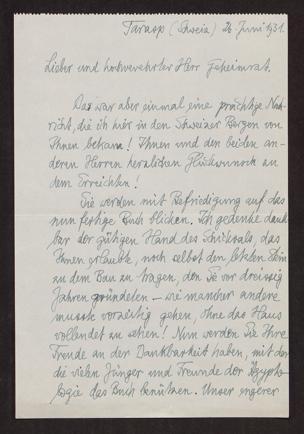 Tarasp (Schweiz) 26. Juni 1931.
Lieber und hochverehrter Herr Geheimrat.
Das war aber einmal eine prächtige Nach-
richt, die ich hier in den Schweizer Bergen von
Ihnen bekam! Ihnen und den beiden an-
deren Herren herzlichen Glückwunsch zu
dem Erreichten!
Sie werden mit Befriedigung auf das
nun fertige Buch blicken. Ich gedenke dank-
bar der gütigen Hand des Schicksals, das
Ihnen erlaubte, noch selbst den letzten Stein
zu dem Bau zu tragen, den Sie vor dreissig
Jahren gründeten – wie mancher andere
musste vorzeitig gehen, ohne das Haus
vollendet zu sehen! Nun werden Sie Ihre
Freude an der Dankbarkeit haben, mit der
die vielen Jünger und Freunde der Ägypto-
logie das Buch benützen. Unser engerer